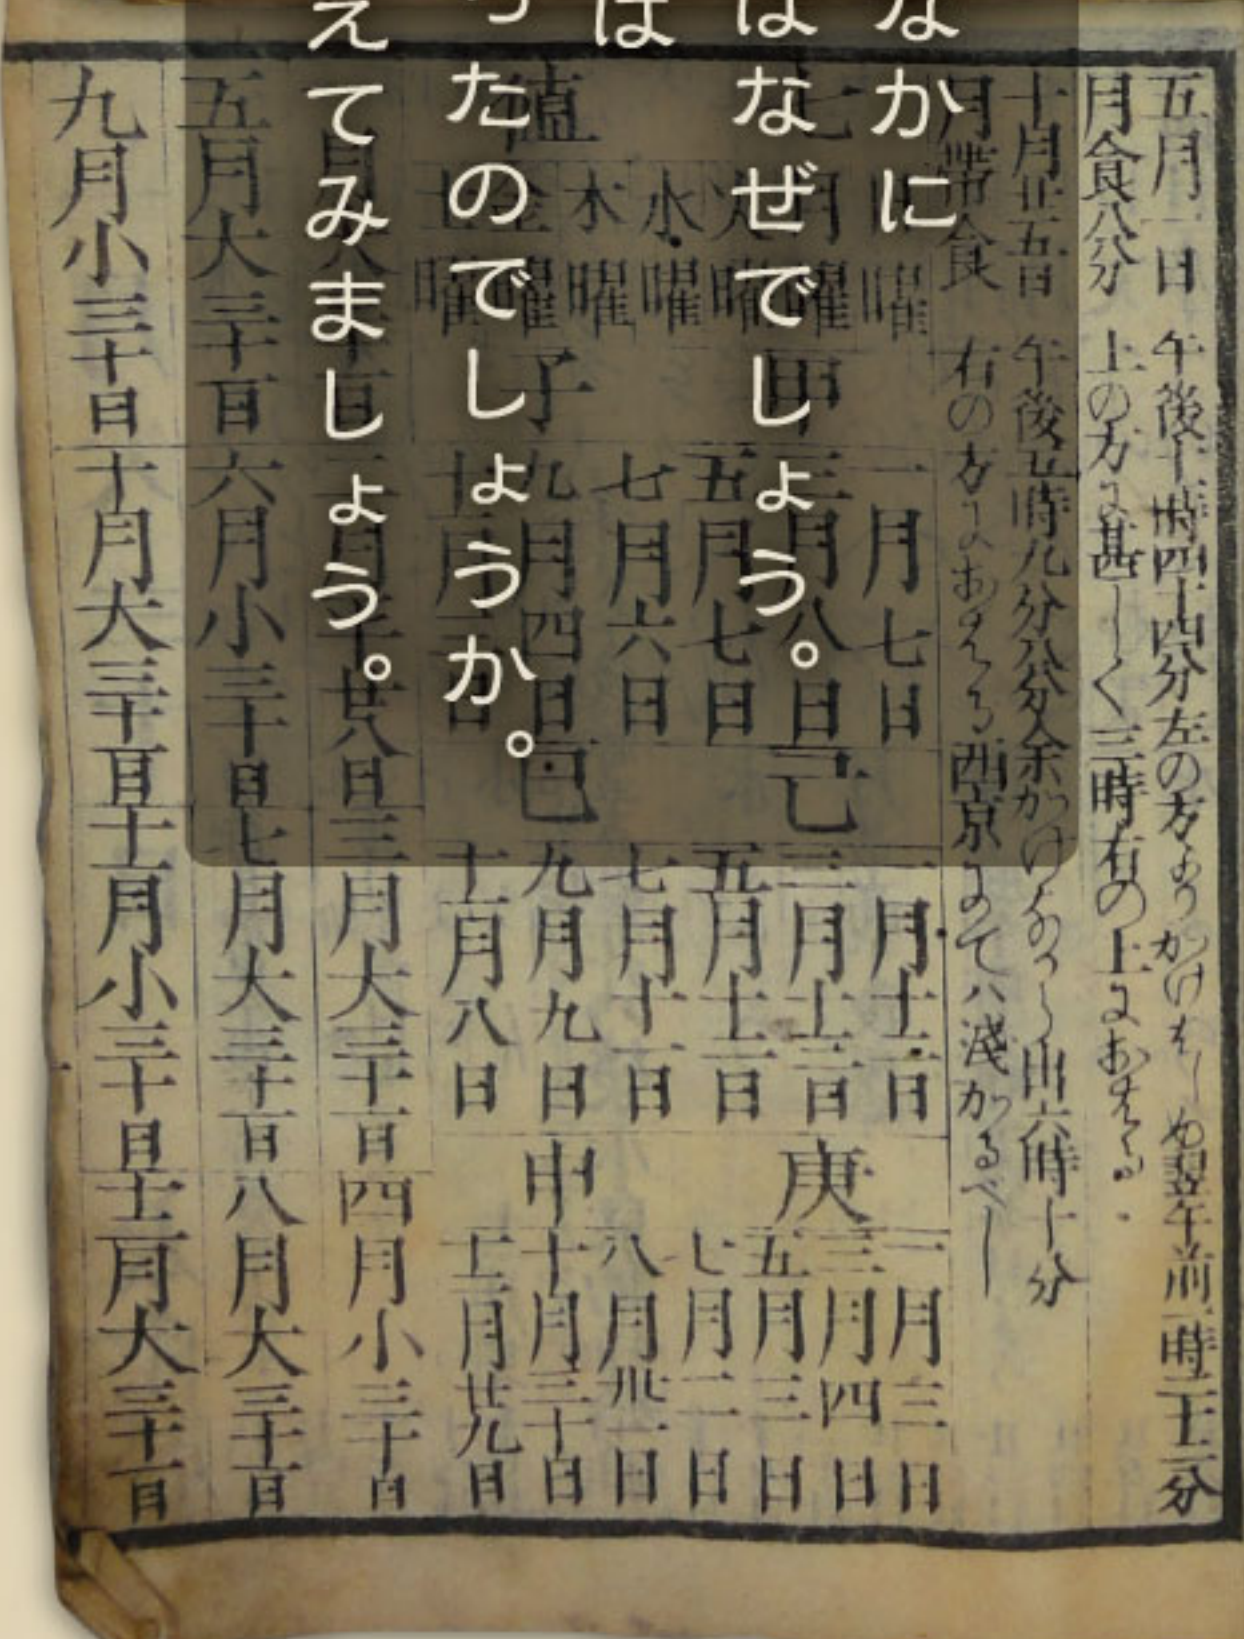 なかに
はなぜでしょう。
は
ったのでしょうか。
えてみましょう。
五月一日 午後十一時四十四分左の方よりかけはしめ翌午前一時三十三分
月食八分 上の方に甚しく三時右の上におはる
十月廿五日 午後五時九分八分余かけなから出六時十分
月帯食 右の方におはる西京にては浅かるべし
七 値
日曜
月曜
火曜
水曜
木曜
金曜
土曜
甲 子
一月七日
三月八日
五月七日
七月六日
九月四日
己 巳
一月十二日
三月十三日
五月十二日
七月十一日
九月九日
十一月八日
庚 申
一月三日
三月四日
五月三日
七月二日
八月卅一日
十月三十日
十二月廿九日
二月平廿八日
三月大三十一日
四月小三十日
五月大三十一日
六月小三十日
七月大三十一日
八月大三十一日
九月小三十日
十月大三十一日
十一月小三十日
十二月大三十一日